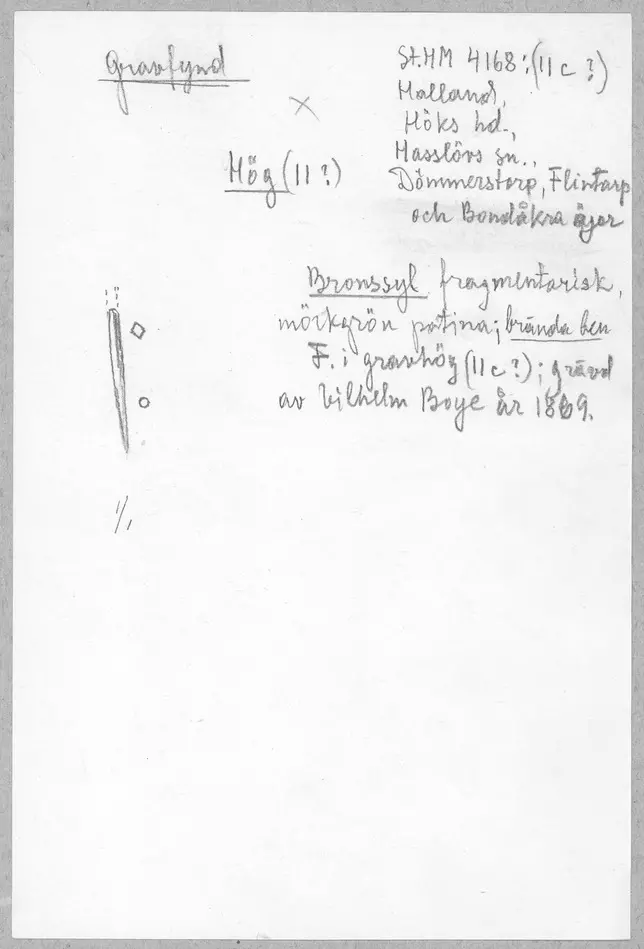 Gravfynd
St.HM 4168:(11c?)
Halland,
Höks hd.,
Hasslövs sn.,
Dömmerstorp, Flintarp
och Bondåkra ägor
Hög (11?)
Bronssyl fragmentarisk,
mörkgrön patina; brända ben
F. i gravhög (11c?); grävd
av Vilhelm Boye år 1869.
1/1